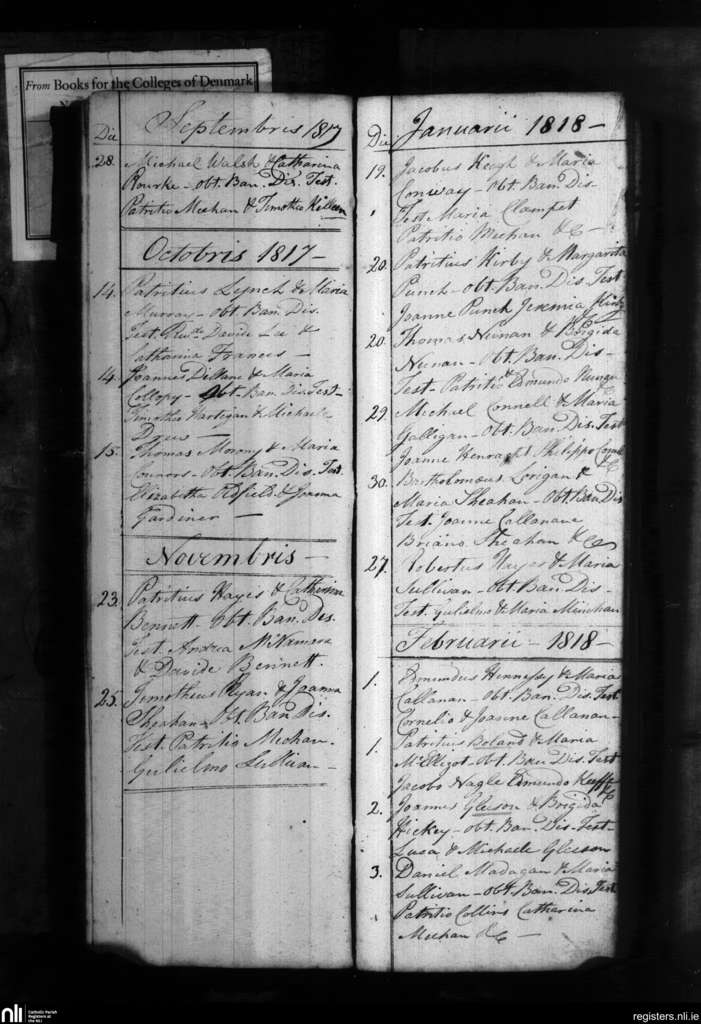 From Books for the Colleges of Denmark
Die Septembris 1817
28. Michael Walsh & Catharina
Rourke - obt. Ban. Dis. Test.
Patritio Meehan & Timotheo Killeen
Octobris 1817 -
14. Patritius Lynch & Maria
Murray - obt. Ban. Dis.
Test. Revdo. Davide Lee &
Catharina Frances -
14. Joannes & Maria
Collopy - obt. Ban. Dis. Test -
Timotheo Hartigan & Michaele
Drew -
15. Thomas Morony & Maria
Connors - obt. Ban. Dis. Test.
Elizabetha Oldfield & Joanna
Gardiner -
Novembris -
23. Patritius Hayes & Catherina
Bennett - obt. Ban. Dis.
Test. Andrea McNamara
& Davide Bennett.
25. Timotheus Ryan & Joanna
Sheahan - obt. Ban Dis.
Test. Patritio Meehan.
Gulielmo Sullivan -
Die Januarii 1818 -
19. Jacobus Keogh & Maria
Conway - obt. Ban. Dis.
Test Maria Clampet
Patritio Meehan &c -
20. Patritius Kirby & Margarita
Punch - obt. Ban. Dis. Test
Joanne Punch Jeremia Kirby
20. Thomas Neunan & Brigida
Neunan - obt. Ban. Dis -
Test - Patritio & Edmundo Nunan
29. Michael Connell & Maria
Galligan - obt. Ban. Dis. Test
Joanne Philippo
30. Bartholomous Lorigan &
Maria Sheahan - obt. Ban Dis
Test. Joanne Callanane
Briano Sheahan &c
27. Robertus Hayes & Maria
Sullivan - obt Ban Dis -
Test. Gulielmo & Maria Minihan
Februarii - 1818 -
1. Edmundus Hennessy & Maria
Callanan - obt. Ban. Dis. Test
Cornelio & Joanne Callanan -
1. Patritius Boland & Maria
McElligot - obt. Ban Dis. Test
Jacobo Nagle Edmundo Keeffe &c
2. Joannes Gleeson & Brigida
Hickey - obt. Ban. Dis. Test -
Luca & Michaele Gleeson
3. Daniel Madagan & Maria
Sullivan - obt. Ban. Dis. Test
Patritio Collins Catharina
Meehan &c -
nli
Catholic Parish
Registers at
the NLI
registers.nli.ie